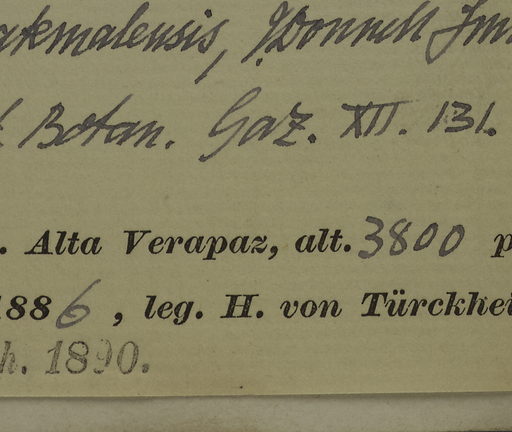 J. Donnell
Botan. Gaz. XII. 131.
. Alta Verapaz, alt. 3800 p
1886, leg. H. von Türckhei
h. 1890.